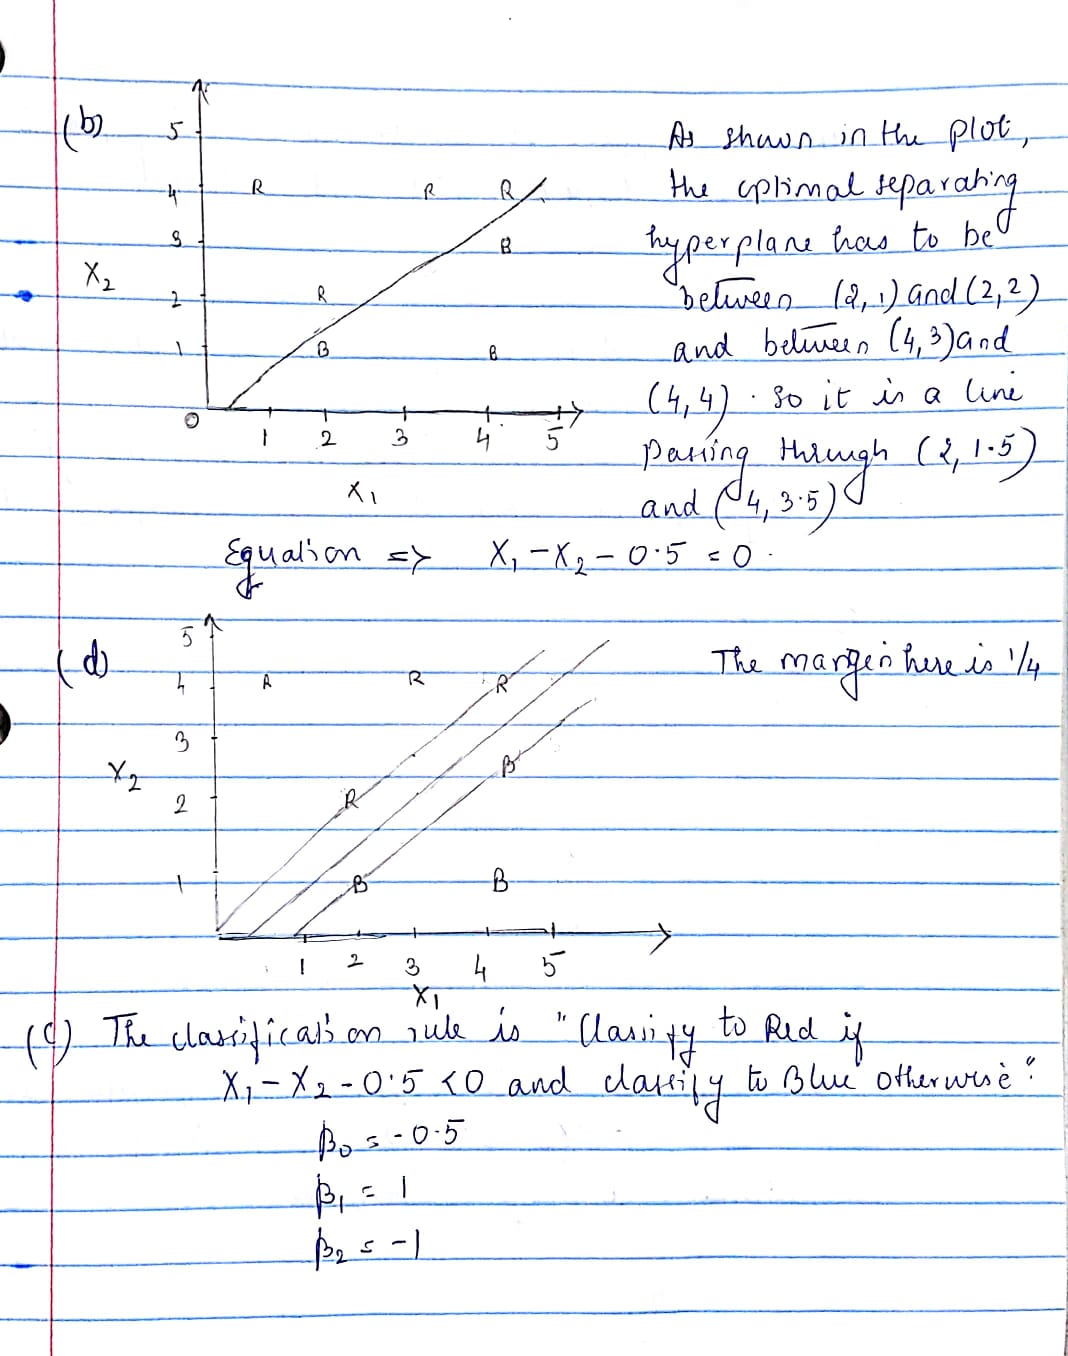 (b)
5
4
3
2
1
0
X₂
R R R
B
R
B B
1 2 3 4 5
X₁
As shown in the plot,
the optimal separating
hyperplane has to be
between (2,1) and (2,2)
and between (4,3) and
(4,4). So it is a line
passing through (2,1.5)
and (4,3.5)
Equation => X₁ - X₂ - 0.5 = 0.
(d)
5
4
3
2
1
X₂
R R R
B
R
B B
1 2 3 4 5
X₁
The margin here is 1/4
(c) The classification rule is "Classify to Red if
X₁ - X₂ - 0.5 < 0 and classify to Blue otherwise".
β₀ = -0.5
β₁ = 1
β₂ = -1